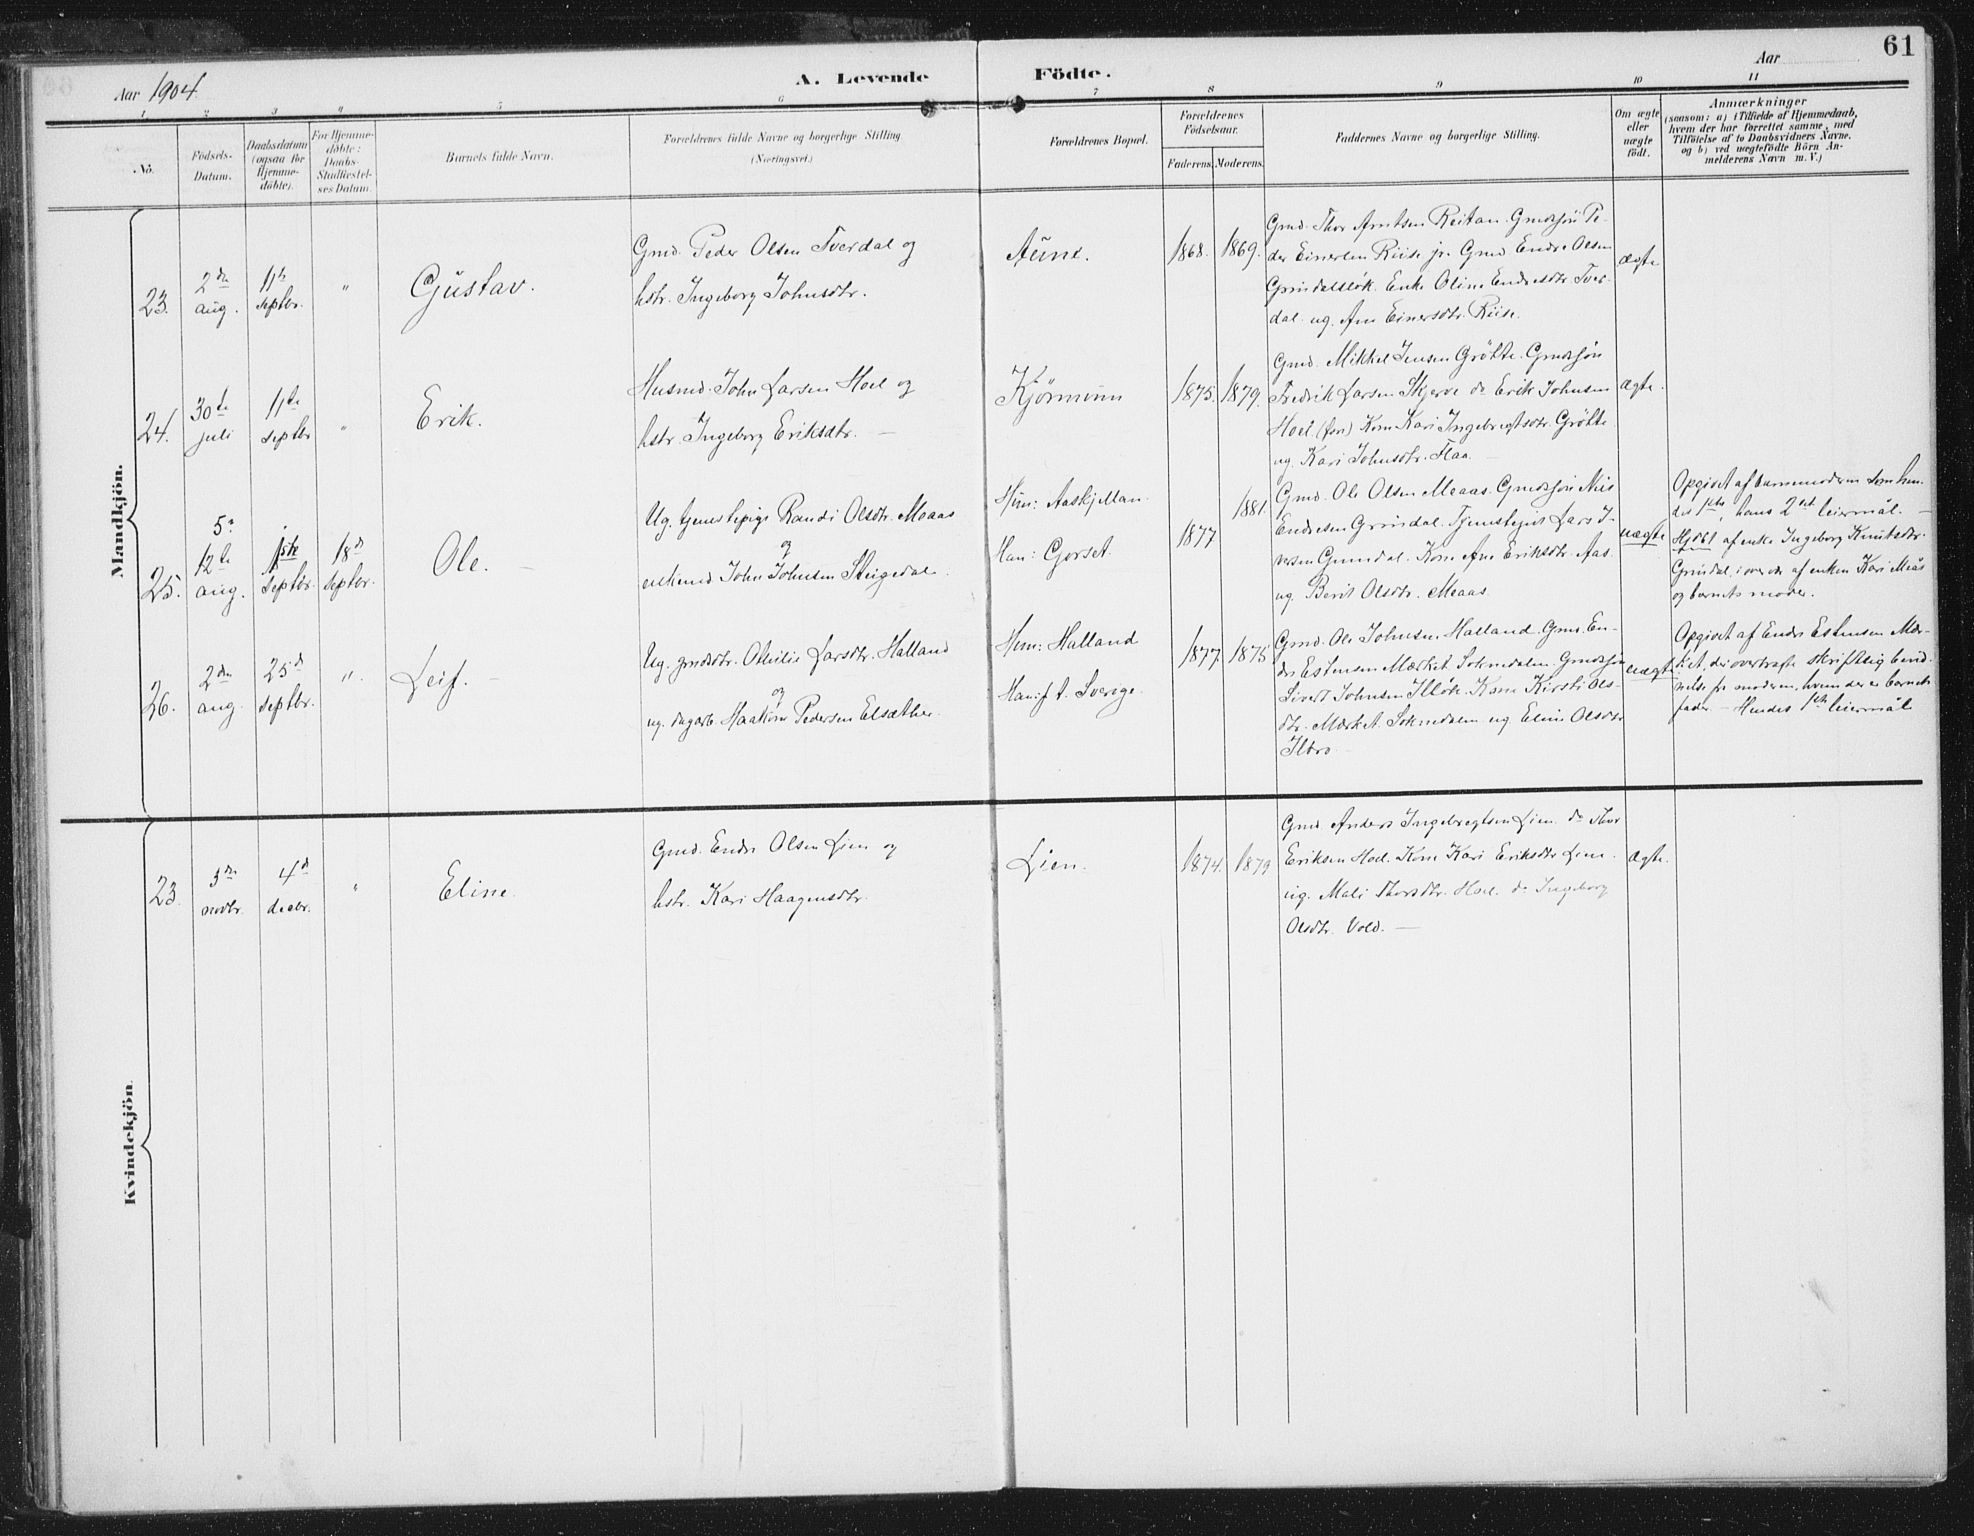 61
Aar 1904.
A. Levende Födte.
Aar
1 2 3 4 5 6 7 8 9 10 11
No.
Födsels-
Datum.
Daabsdatum
(ogsaa for
Hjemme-
döbte).
For Hjemme-
döbte:
Daabs-
Stadfæstel-
ses Datum.
Barnets fulde Navn.
Forældrenes fulde Navne og borgerlige Stilling
(Næringsvei.)
Forældrenes Bopæl.
Forældrenes
Födselsaar.
Faderens. Moderens.
Faddernes Navne og borgerlige Stilling.
Om ægte
eller
uægte
födt.
Anmærkninger
(saasom: a) i Tilfælde af Hjemmedaab,
hvem der har forrettet samme, med
Tilföielse af to Daabsvidners Navne,
og b) ved uægtefödte Börn An-
melderens Navn m. V.)
Mandkjön.
23.
2den
aug.
11te
septbr.
"
Gustav.
Gmd. Peder Olsen Tverdal og
hstr. Ingeborg Johnsdtr.
Aune.
1868. 1869.
Gmd. Thor Arntsen Reitan. Gmdsjön Pe-
der Einersen Riise jr. Gmd Endre Olsen
Grindalslök. Enke Oline Endresdtr. Tver-
dal. ug. Ane Einersdtr. Riise.
ægte
24.
30te
juli
11te
septbr
"
Erik.
Husmd. John Larsen Hoel og
hstr. Ingeborg Eriksdtr. —
Kjörmoun
1875. 1879.
Gmd. Mikkel Jensen Grötte. Gmdsjön
Fredrik Larsen Skjerve do Erik Johnsen
Hoel (fon) Kone Kari Ingebregtsdtr. Grötte
ug. Kari Johnsdtr. Flaa. —
ægte.
25.
12te
aug.
1ste
septbr.
18d
septbr.
Ole. —
Ug. tjenestepige Randi Olsdtr. Meaas
og
enkemd John Johnsen Steigedal.
Hun: Aaskjellan
Han: Gorset.
1877. 1881.
Gmd. Ole Olsen Meaas. Gmdsjön Nils
Endresen Grindal. Tjenestegut Lars I-
versen Grindal. Kone Ane Eriksdtr. Aas.
ug. Berit Olsdtr. Meaas.
uægte
Opgivet af barnemoderen som hen-
des 1ste, hans 2det leiermål. —
Hjdbt af enke Ingeborg Knutsdtr.
Grindal, i overvær af enken Kari Meås
og barnets moder.
26.
2den
aug.
25d
septbr.
"
Leif. —
Ug. grdsdtr. Othilie Larsdtr. Halland
og
ug. dagarb. Haakon Pedersen Elsæther.
Hun: Halland
Han: f. t. Sverige.
1877. 1875
Gmd. Ole Johnsen Halland. Gmd. En-
dre Estensen Mærket Soknedalen. Gmdsjön
Sivert Johnsen Illök. Kone Kirsti Ols-
dtr. Mærket. Soknedalen ug Eline Olsdtr
Ilbro
uægte
Opgivet af Endre Estensen Mær-
ket, der overbragte skriftlig kend-
nelse fra moderen, hvem der er barnets
fader. — Hendes 1ste leiermål
Kvindekjön
23.
3die
novbr.
4d
decbr.
"
Eline.
Gmd. Endre Olsen Lien og
hstr. Kari Haagensdtr.
Lien.
1874. 1879
Gmd. Anders Ingebregtsen Lien. do Thor
Eriksen Hoel. Kone Kari Eriksdtr Lien.
ug. Mali Thorsdtr. Hoel. do Ingeborg
Olsdtr. Vold. —
ægte.